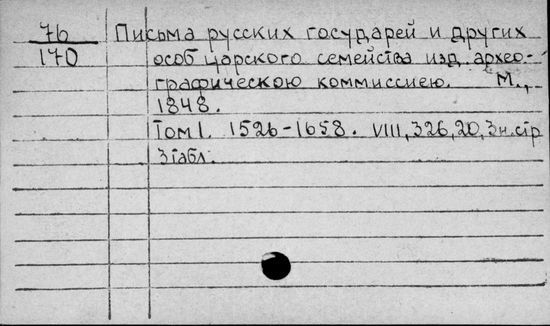 76 Письма русских государей и других
170 особ царского семейства изд. архео-
графическою коммиссиею. М.,
1848.
Том I. 1526-1658. VIII, 326, 20, 3н.стр
3 табл.